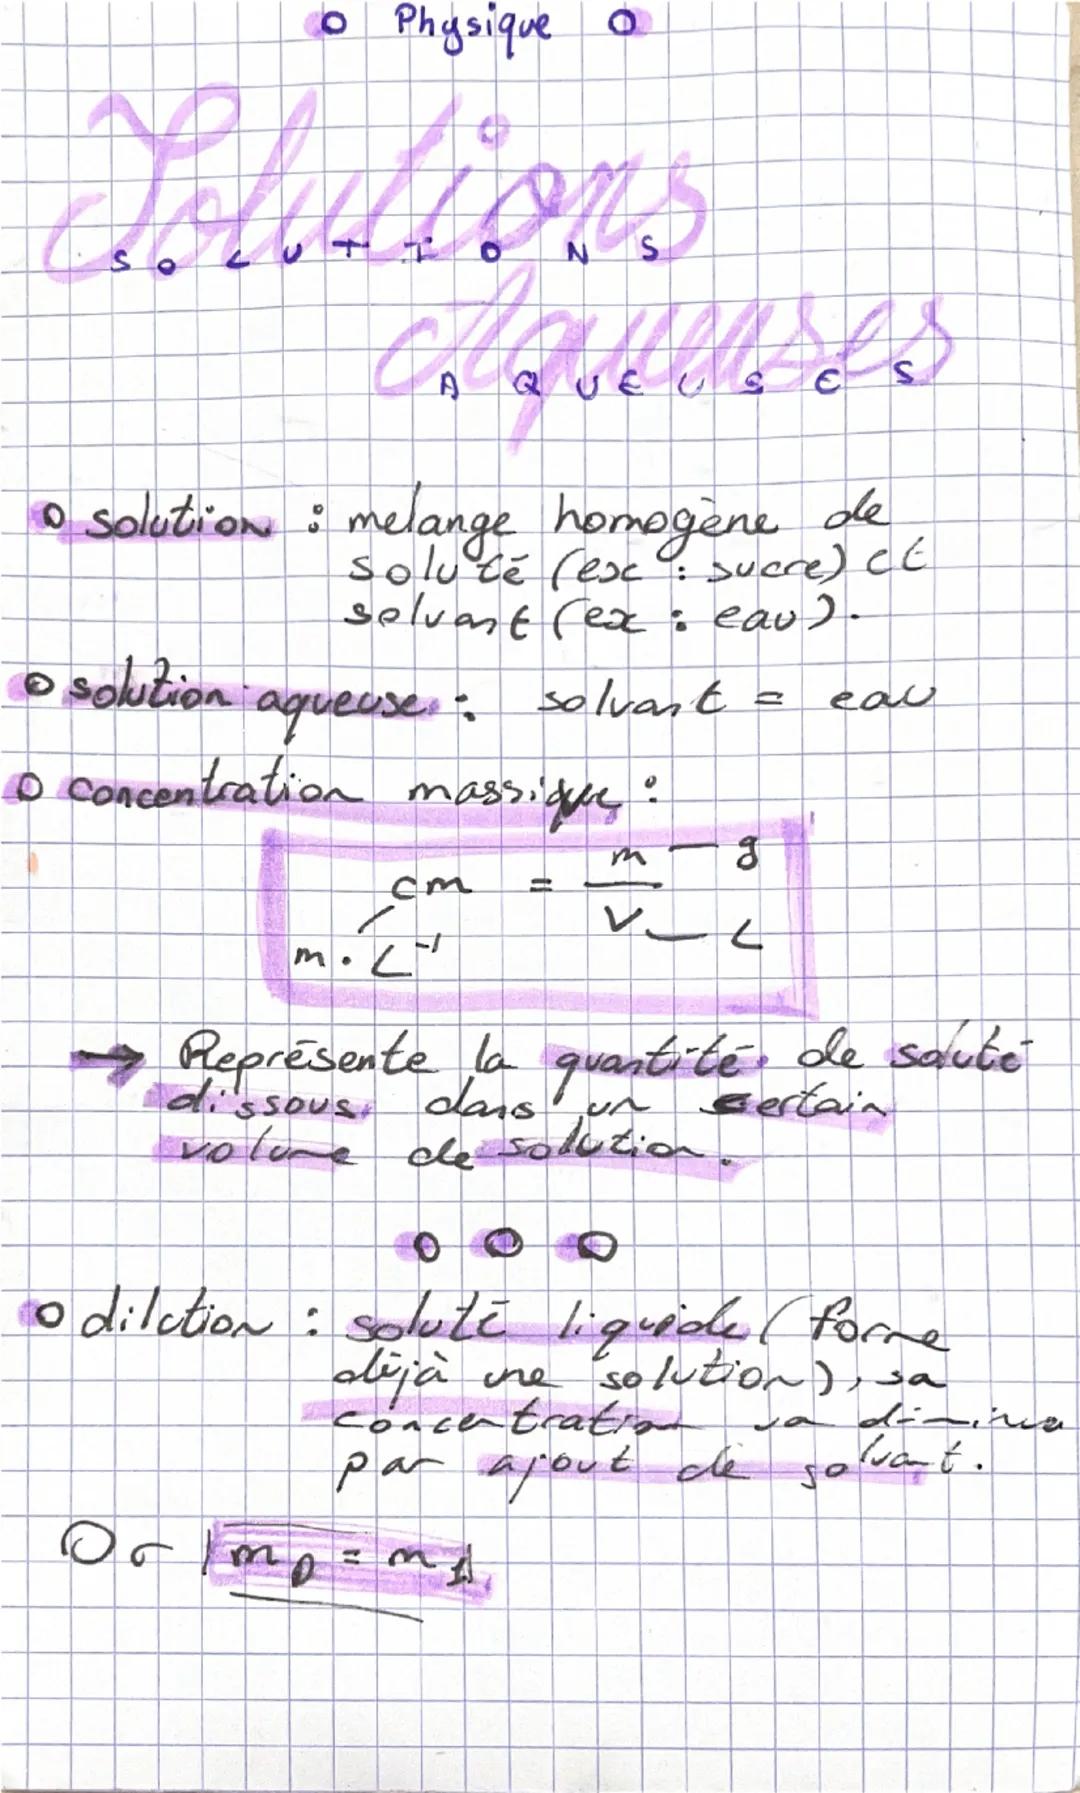 Physique
Solutions
SOLUTIONS
Aqueuses
AQUEUSES
solution : melange homogène de
soluté (ex : sucre) et
solvant (ex : eau).
solution aqueuse : solvant = eau
concentration massique :
m — g
cm = —
V — L
m . L⁻¹
→ Représente la quantité de soluté
dissous dans un certain
volume de solution.
dilution : soluté liquide (forme
déjà une solution), sa
concentration va diminuer
par ajout de solvant.
Or m₀ = m₁